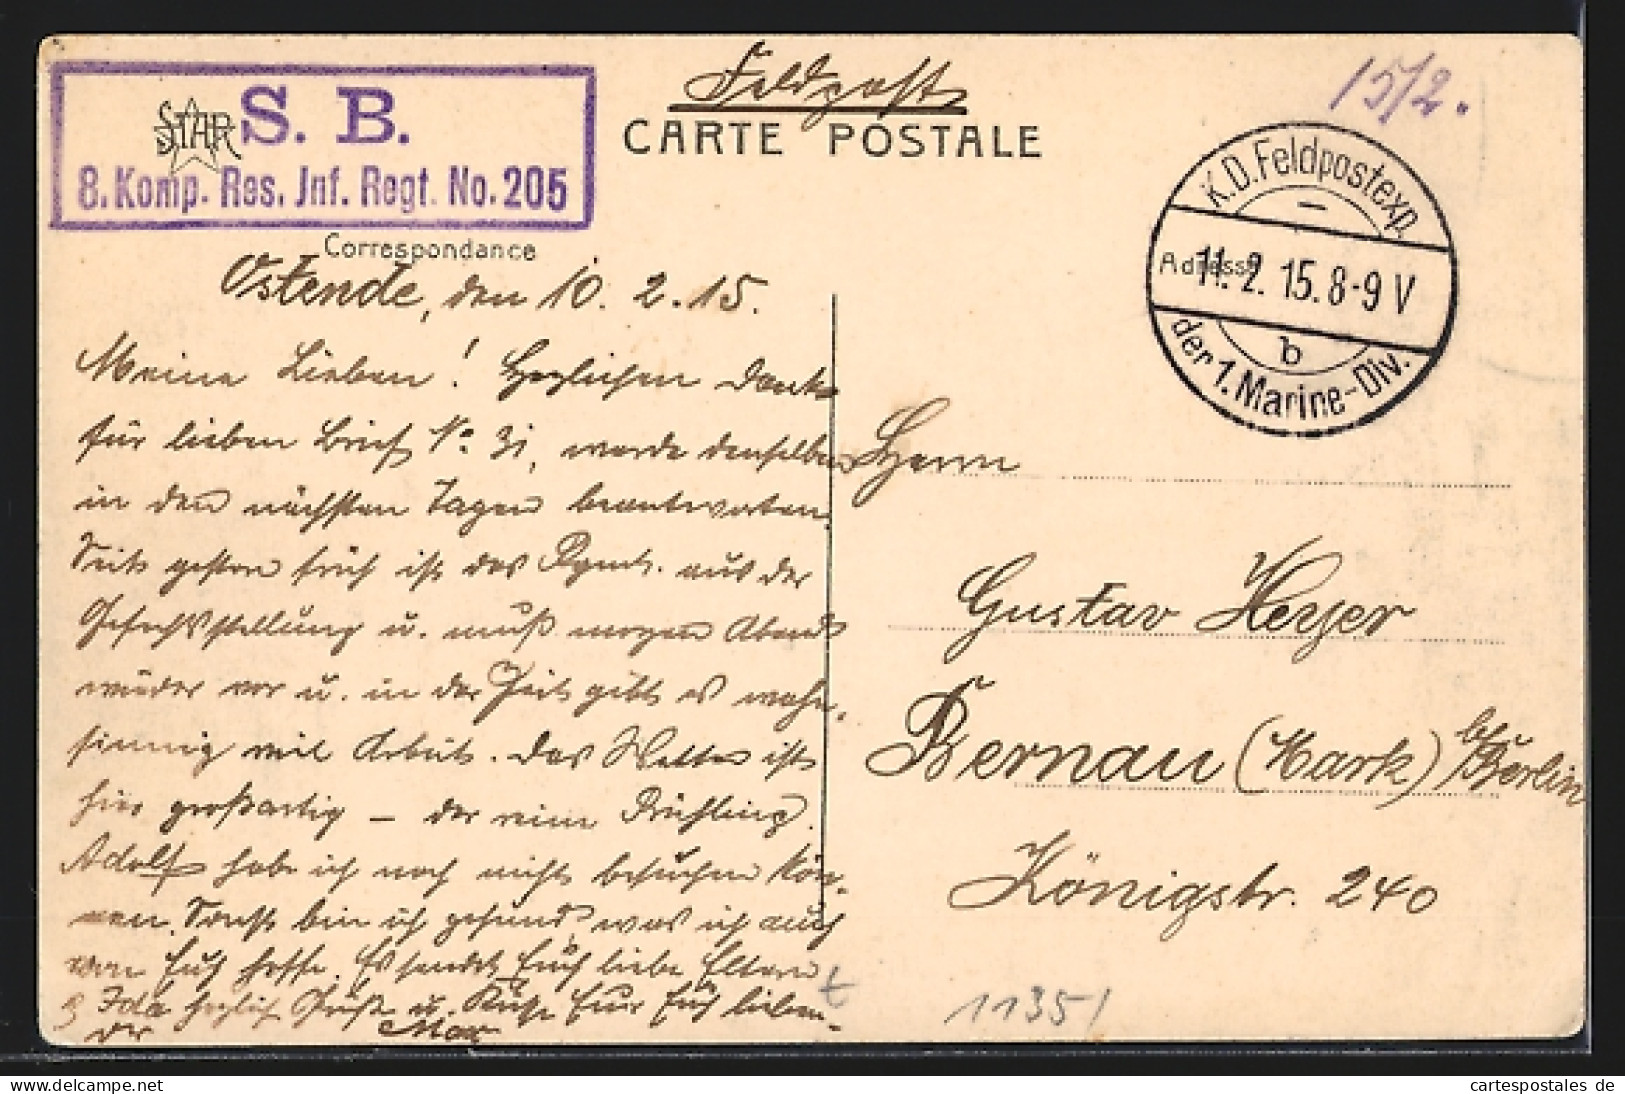 Feldpost
CARTE POSTALE
15/2.
STAR
S. B.
8. Komp. Res. Inf. Regt. No. 205
Correspondance
K.D. Feldpostexp.
Adresse
11. 2. 15. 8-9 V
b
der 1. Marine-Div.
Ostende, den 10. 2. 15.
Meine Lieben! Herzlichen Dank
für lieben Brief No 31, werde denselben
in den nächsten Tagen beantworten.
Seit gestern früh ist das Rgmt. aus der
Gefechtsstellung u. muß morgen Abend
wieder vor u. in der Zeit gibt es wahn-
sinnig viel Arbeit. Das Wetter ist
hier großartig – der reine Frühling.
Adolf habe ich noch nicht besuchen kön-
nen. Sonst bin ich gesund, was ich auch
von Euch hoffe. Es sendet Euch liebe Eltern
u. Ida herzlich Grüße u. Küsse Eur Euch lieben-
der Max
Herrn
Gustav Heyer
Bernau (Mark) bei Berlin
Königstr. 240
t
11351
© cartespostales.de
cartespostales de